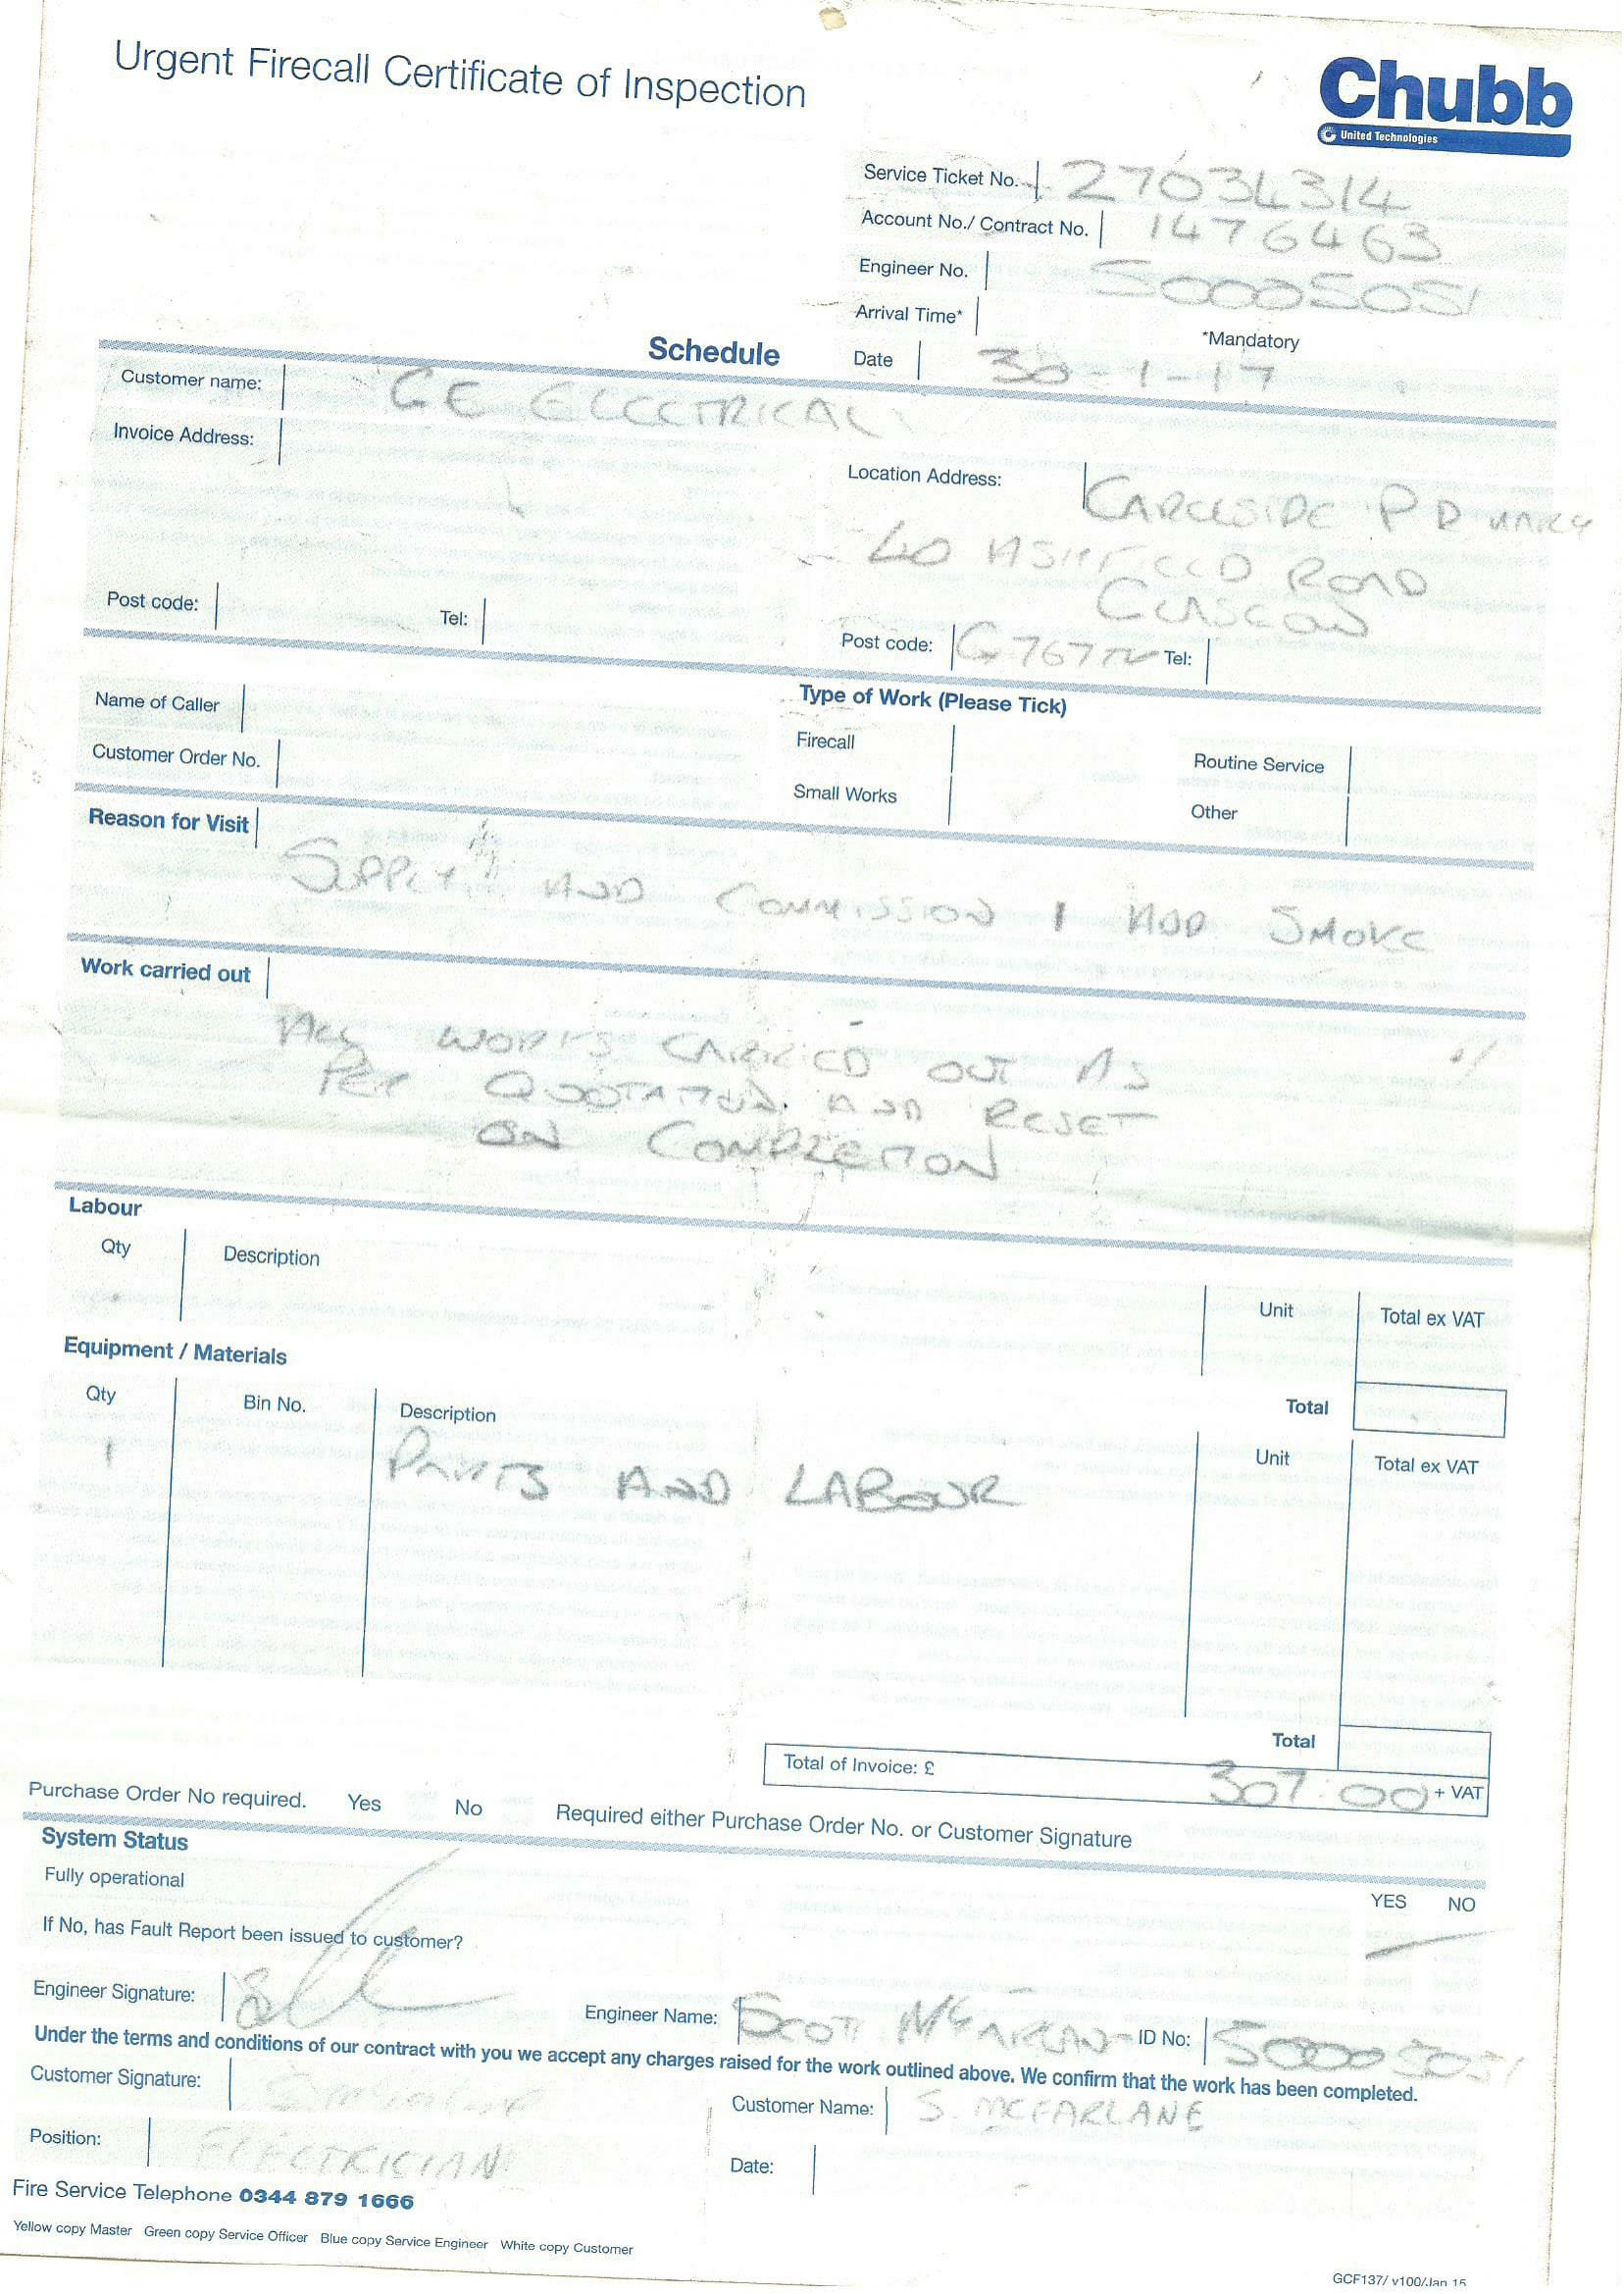 Urgent Firecall Certificate of Inspection
Chubb
United Technologies
Service Ticket No. 27034314
Account No./ Contract No. 1476463
Engineer No. 50005051
Arrival Time*
*Mandatory
Schedule
Date 30-1-17
Customer name: GE ELECTRICAL
Invoice Address:
Location Address: CARCLSIDE PRIMARY
40 ASHFIELD ROAD
GLASGOW
Post code: Tel:
Post code: G767TV Tel:
Name of Caller
Type of Work (Please Tick)
Firecall
Routine Service
Customer Order No.
Small Works
Other
Reason for Visit
SUPPLY AND COMMISSION 1 ADD SMOKE
Work carried out
ALL WORKS CARRIED OUT AS
PER QUOTATION. AND RESET
ON COMPLETION
Labour
Qty Description Unit Total ex VAT
Total
Equipment / Materials
Qty Bin No. Description Unit Total ex VAT
1 PARTS AND LABOUR
Total
Total of Invoice: £ 307:00 + VAT
Purchase Order No required. Yes No Required either Purchase Order No. or Customer Signature
System Status
Fully operational
YES NO
If No, has Fault Report been issued to customer?
Engineer Signature: Engineer Name: SCOTT McFARLAN ID No: 50005051
Under the terms and conditions of our contract with you we accept any charges raised for the work outlined above. We confirm that the work has been completed.
Customer Signature: Customer Name: S. MCFARLANE
Position: ELECTRICIAN
Date:
Fire Service Telephone 0344 879 1666
Yellow copy Master Green copy Service Officer Blue copy Service Engineer White copy Customer
GCF137/ v100/Jan 15